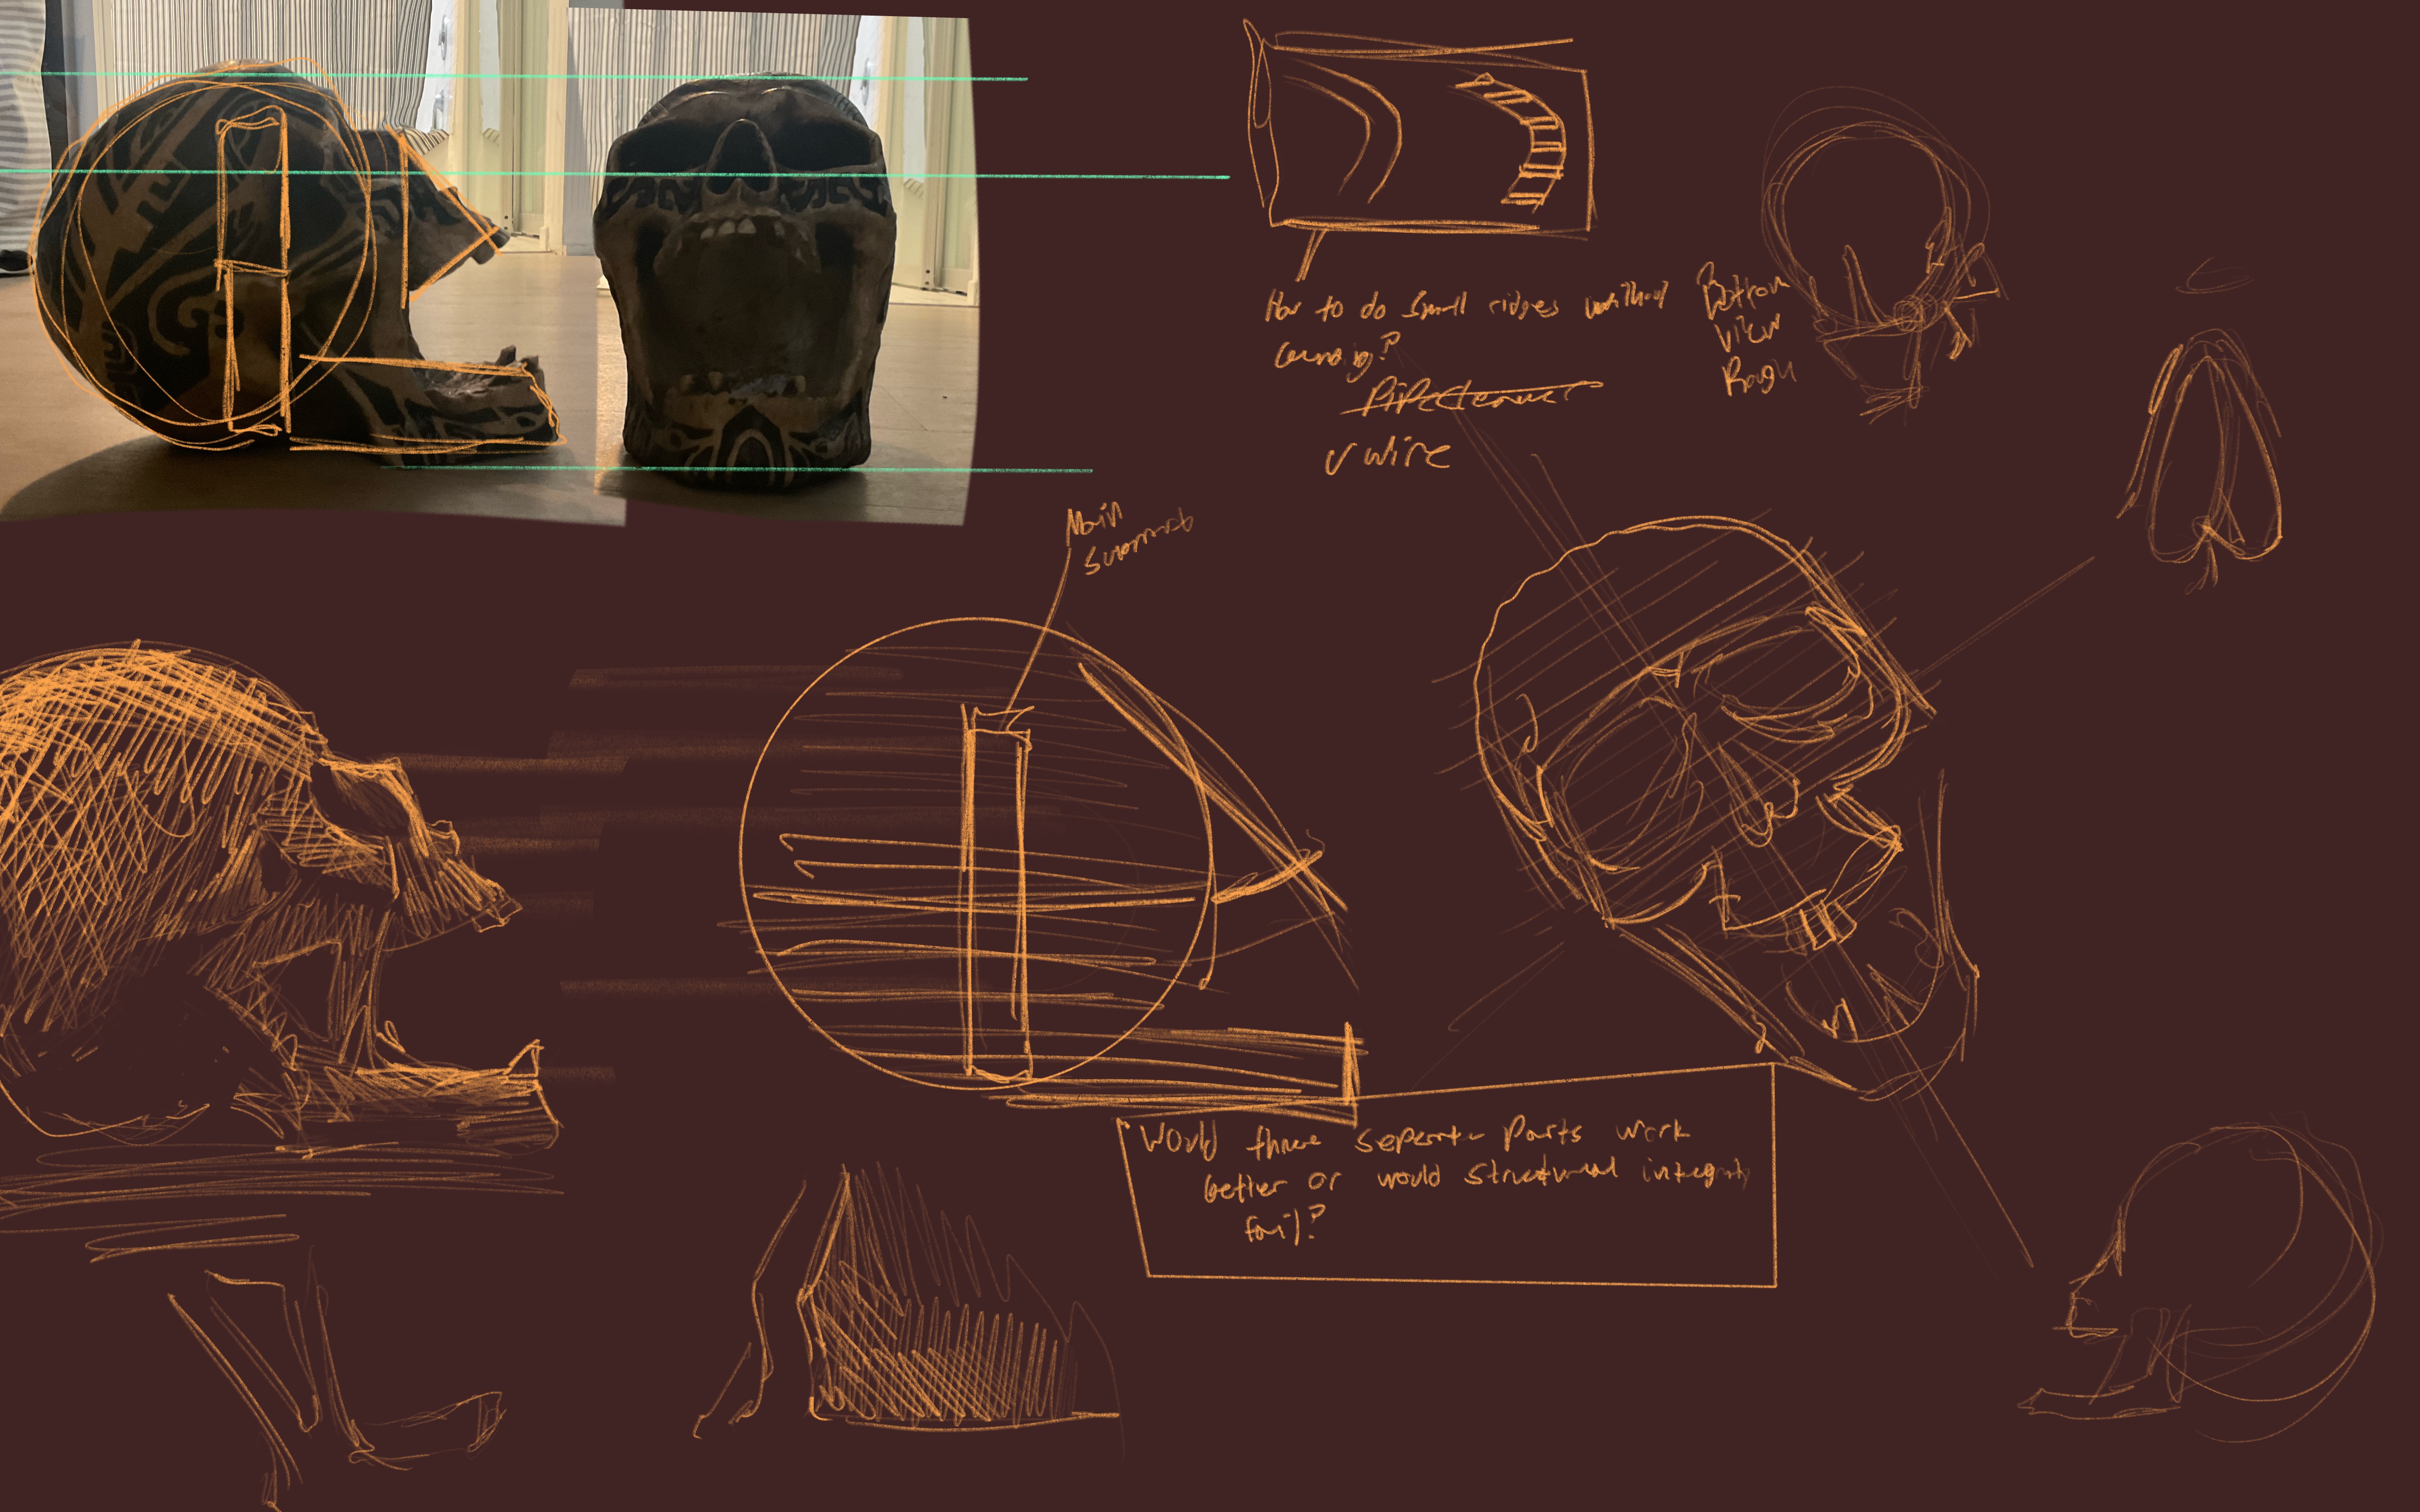 How to do small ridges without
carving?
Pipecleaner
✓ wire
Bottom
View
Rough
Main
Would three seperate parts work
better or would structural integrity
fail?